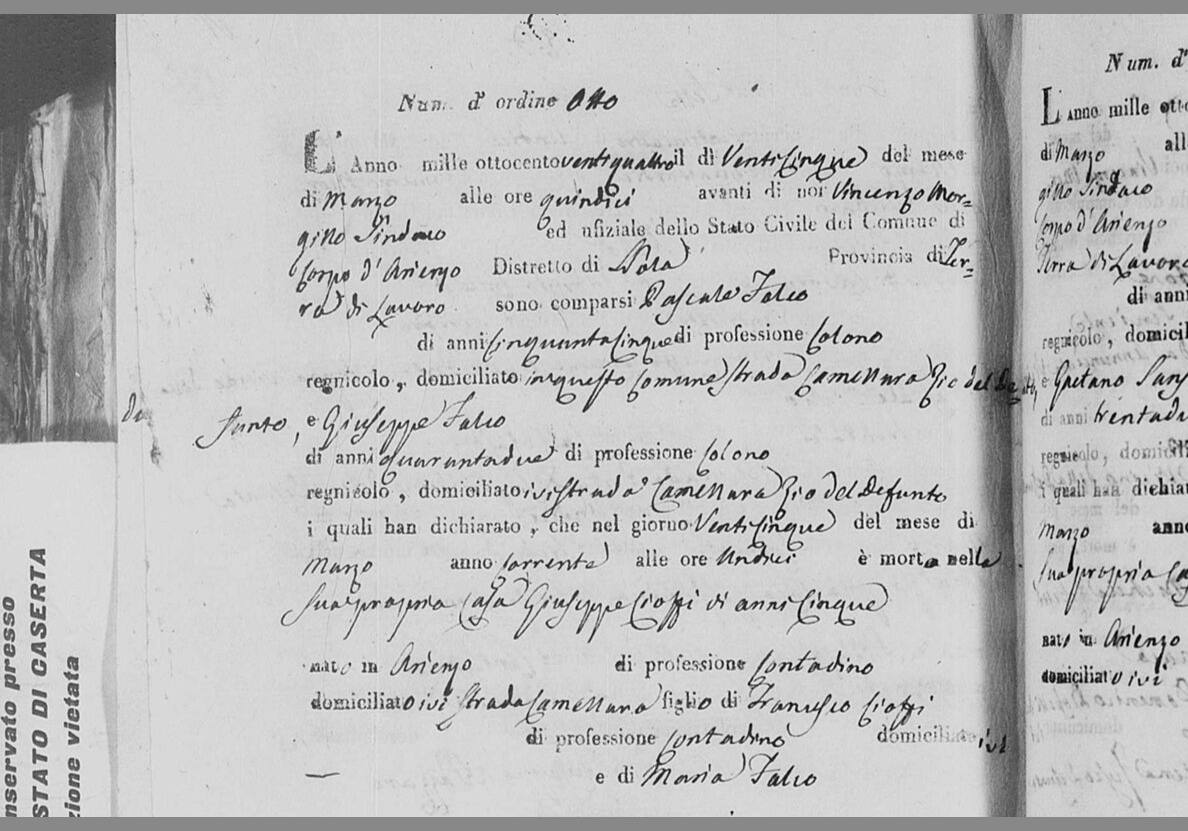 Num. d' ordine Otto
L' Anno mille ottocento ventiquattro il dì Venticinque del mese
di Marzo alle ore quindici avanti di noi Vincenzo Mor=
gillo Sindaco ed ufiziale dello Stato Civile del Comune di
Corpo d' Arienzo Distretto di Nola Provincia di Ter=
ra di Lavoro sono comparsi Pascale Falco
di anni Cinquantacinque di professione Colono
regnicolo, domiciliato in questo Comune strada Camellara Zio del De=
funto, e Giuseppe Falco
di anni quarantadue di professione Colono
regnicolo, domiciliato ivi strada Camellara Zio del Defunto
i quali han dichiarato, che nel giorno Venticinque del mese di
Marzo anno corrente alle ore Undici è morto nella
sua propria Casa Giuseppe Cioffi di anni Cinque
nato in Arienzo di professione Contadino
domiciliato ivi strada Camellara figlio di Francesco Cioffi
di professione Contadino domiciliato ivi
— e di Maria Falco
Num. d'
L' Anno mille otto
di Marzo all
gillo Sindaco
Corpo d' Arienzo
Terra di Lavoro
di anni
regnicolo, domicil
e Gaetano Sans
di anni trentadu
regnicolo, domicili
i quali han dichiar
Marzo anno
sua propria Ca
nato in Arienzo
domiciliato ivi
nservato presso
STATO DI CASERTA
zione vietata